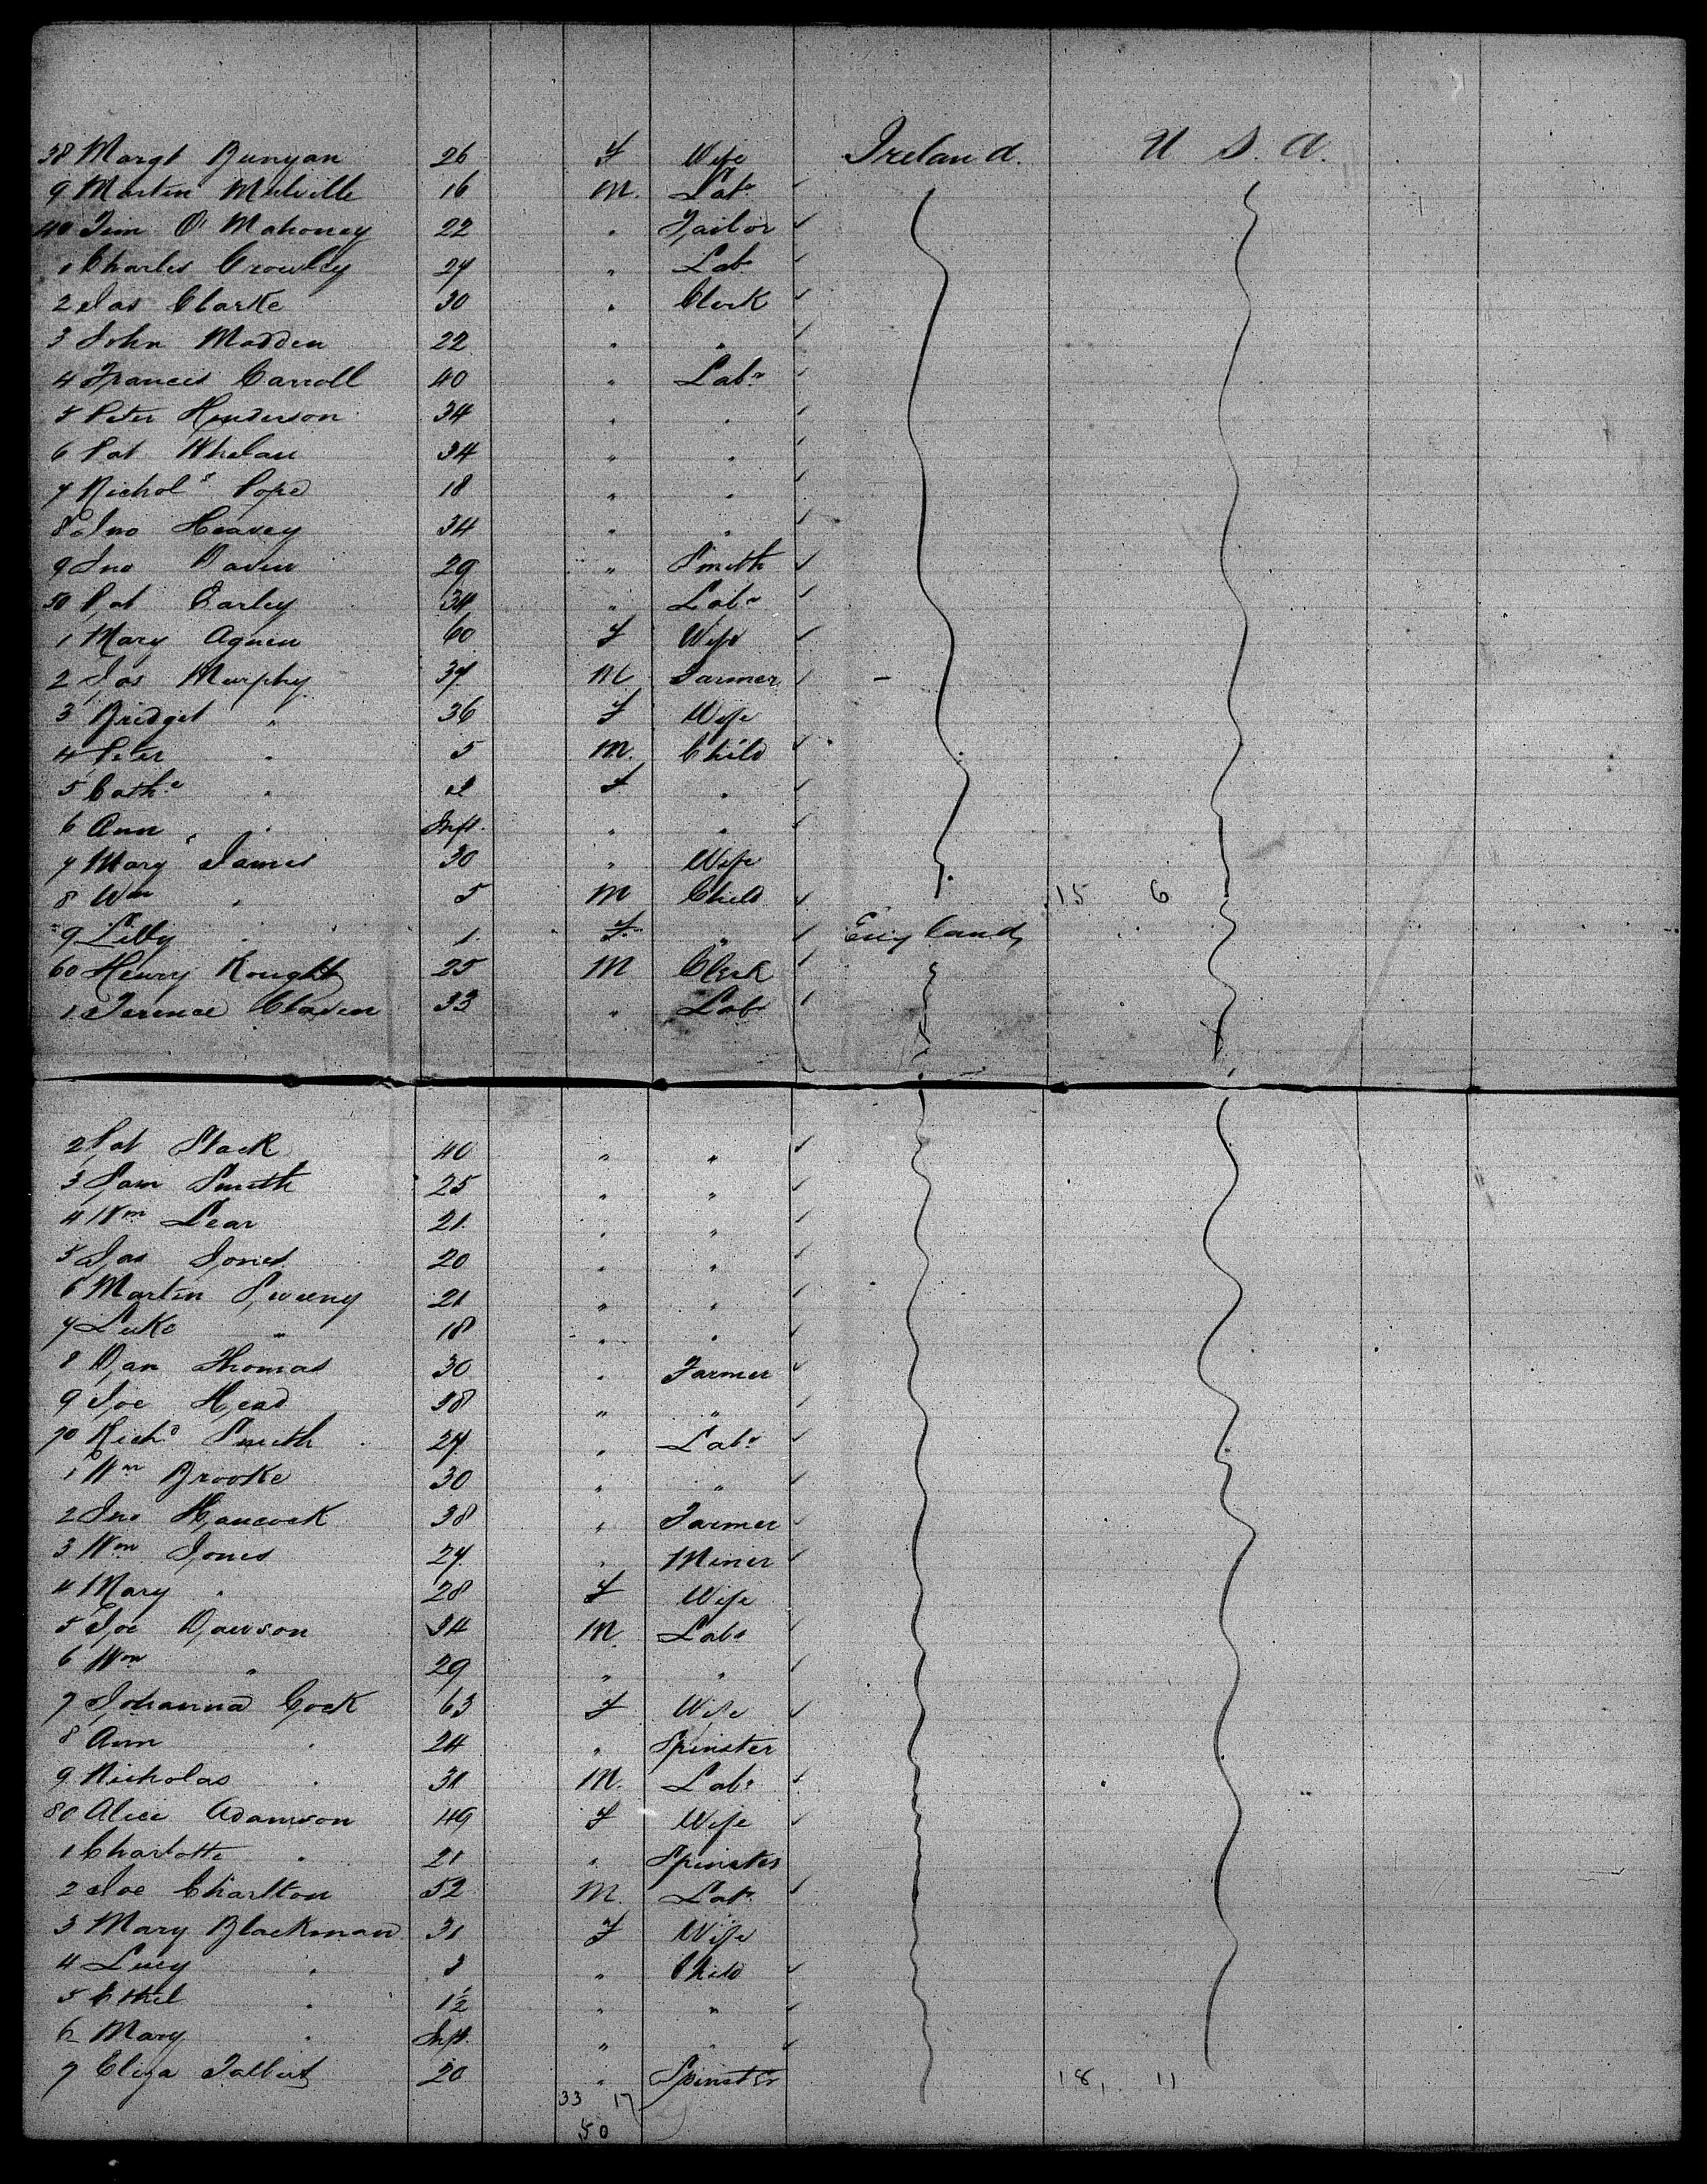 38 Margt Bunyan 26 F Wife Ireland. U S. A.
9 Martin Melville 16 M. Labr
40 Tim O'Mahoney 22 " Tailor
1 Charles Crowley 27 " Labr
2 Jas Clarke 30 " Clerk
3 John Madden 22 " "
4 Francis Carroll 40 " Labr
5 Peter Henderson 34 " "
6 Pat Whelan 34 " "
7 Nichols Pope 18 " "
8 Jno Heavey 34 " "
9 Jno Daven 29 " Smith
50 Pat Earley 34 " Labr
1 Mary Agnew 60 F Wife
2 Jas Murphy 37 M Farmer
3 Bridget " 36 F Wife
4 Peter " 5 M. Child
5 Cathe " 2 F "
6 Ann " Inft. " "
7 Mary James 30 " Wife
8 Wm " 5 M Child 15 6
9 Lilly " 1 F " England
60 Henry Kought 25 M Clerk
1 Terence Claven 33 " Labr
2 Pat Slack 40 " "
3 Sam Smith 25 " "
4 Wm Lear 21 " "
5 Jas Jones 20 " "
6 Martin Sweeny 21 " "
7 Luke " 18 " "
8 Dan Thomas 30 " Farmer
9 Joe Head 38 " "
70 Richd Smith 27 " Labr
1 Wm Brooke 30 " "
2 Jno Hancock 38 " Farmer
3 Wm Jones 27 " Miner
4 Mary " 28 F Wife
5 Joe Dawson 34 M. Labr
6 Wm " 29 " "
7 Johanna Cock 63 F Wife
8 Ann " 24 " Spinster
9 Nicholas " 31 M. Labr
80 Alice Adamson 49 F Wife
1 Charlotte " 21 " Spinster
2 Joe Charlton 52 M. Labr
3 Mary Blackman 31 F Wife
4 Lucy " 3 " Child
5 Ethel " 1½ " "
6 Mary " Inft. " "
7 Eliza Talbut 20 " Spinster 18, 11
33 17
50